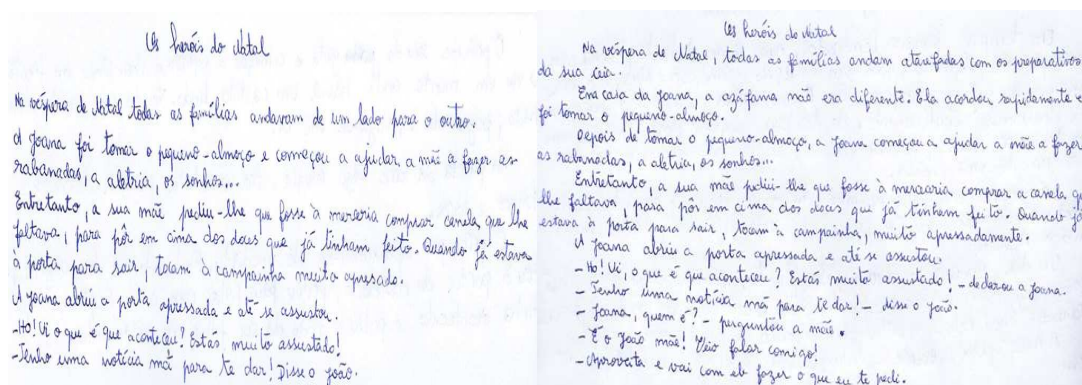 Os heróis do Natal
Na véspera de Natal todas as famílias andavam de um lado para o outro.
A Joana foi tomar o pequeno-almoço e começou a ajudar, a mãe a fazer as
rabanadas, a aletria, os sonhos...
Entretanto, a sua mãe pediu-lhe que fosse à merceria comprar canela que lhe
faltava, para pôr em cima dos doces que já tinham feito. Quando já estava
à porta para sair, tocam à campainha muita apresado.
A Joana abriu a porta apressada e até se assustou.
-Ho! Vi o que é que aconteceu! Estas muito assustado!
-Tenho uma notícia má para te dar! Disse o joão.
Os heróis do Natal
Na véspera de Natal, todas as famílias andam atarefadas com os preparativos
da sua ceia.
Em casa da Joana, a azáfama não era diferente. Ela acordou rapidamente e
foi tomar o pequeno-almoço.
Depois de tomar o pequeno-almoço, a Joana começou a ajudar a mãe a fazer
as rabanadas, a aletria, os sonhos...
Entretanto, a sua mãe pediu-lhe que fosse à mercearia comprar a canela
lhe faltava, para pôr em cima dos doces que já tinham feito. Quando já
estava à porta para sair, tocam à campainha, muito apressadamente.
A Joana abriu a porta apressada e até se assustou.
-Ho! Vi, o que é que aconteceu? Estás muito assustado! - declarou a Joana.
-Tenho uma notícia má para te dar! - disse o João.
-Joana, quem é? - perguntou a mãe.
-É o João mãe! Veio falar comigo!
-Aproveita e vai com ele fazer o que eu te pedi.